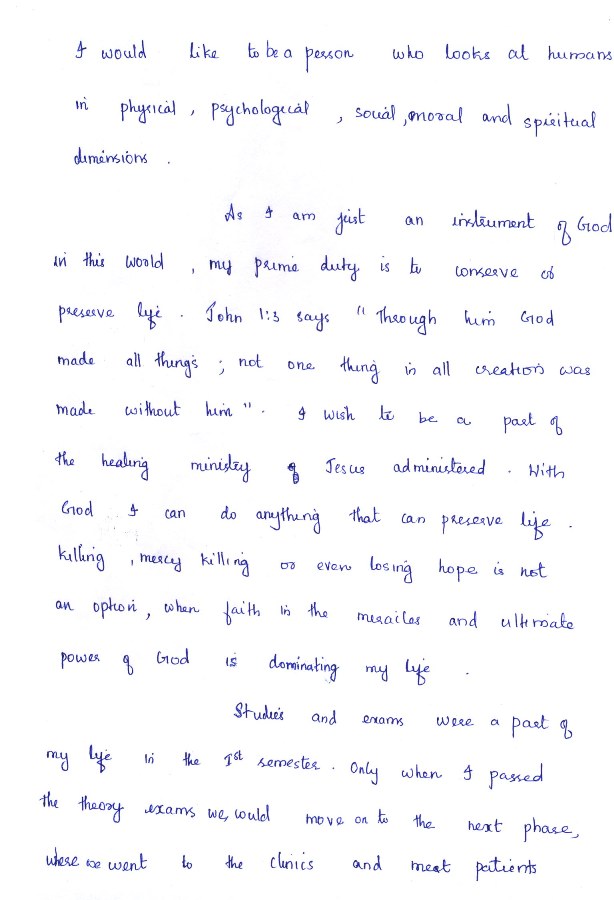 I would like to be a person who looks at humans
in physical, psychological, social, moral and spiritual
dimensions.
As I am just an instrument of God
in this world, my prime duty is to conserve or
preserve life. John 1:3 says "Through him God
made all things; not one thing in all creation was
made without him". I wish to be a part of
the healing ministry of Jesus administered. With
God I can do anything that can preserve life.
killing, mercy killing or even losing hope is not
an option, when faith in the miracles and ultimate
power of God is dominating my life.
Studies and exams were a part of
my life in the Ist semester. Only when I passed
the theory exams we, would move on to the next phase,
where we went to the clinics and meat patients